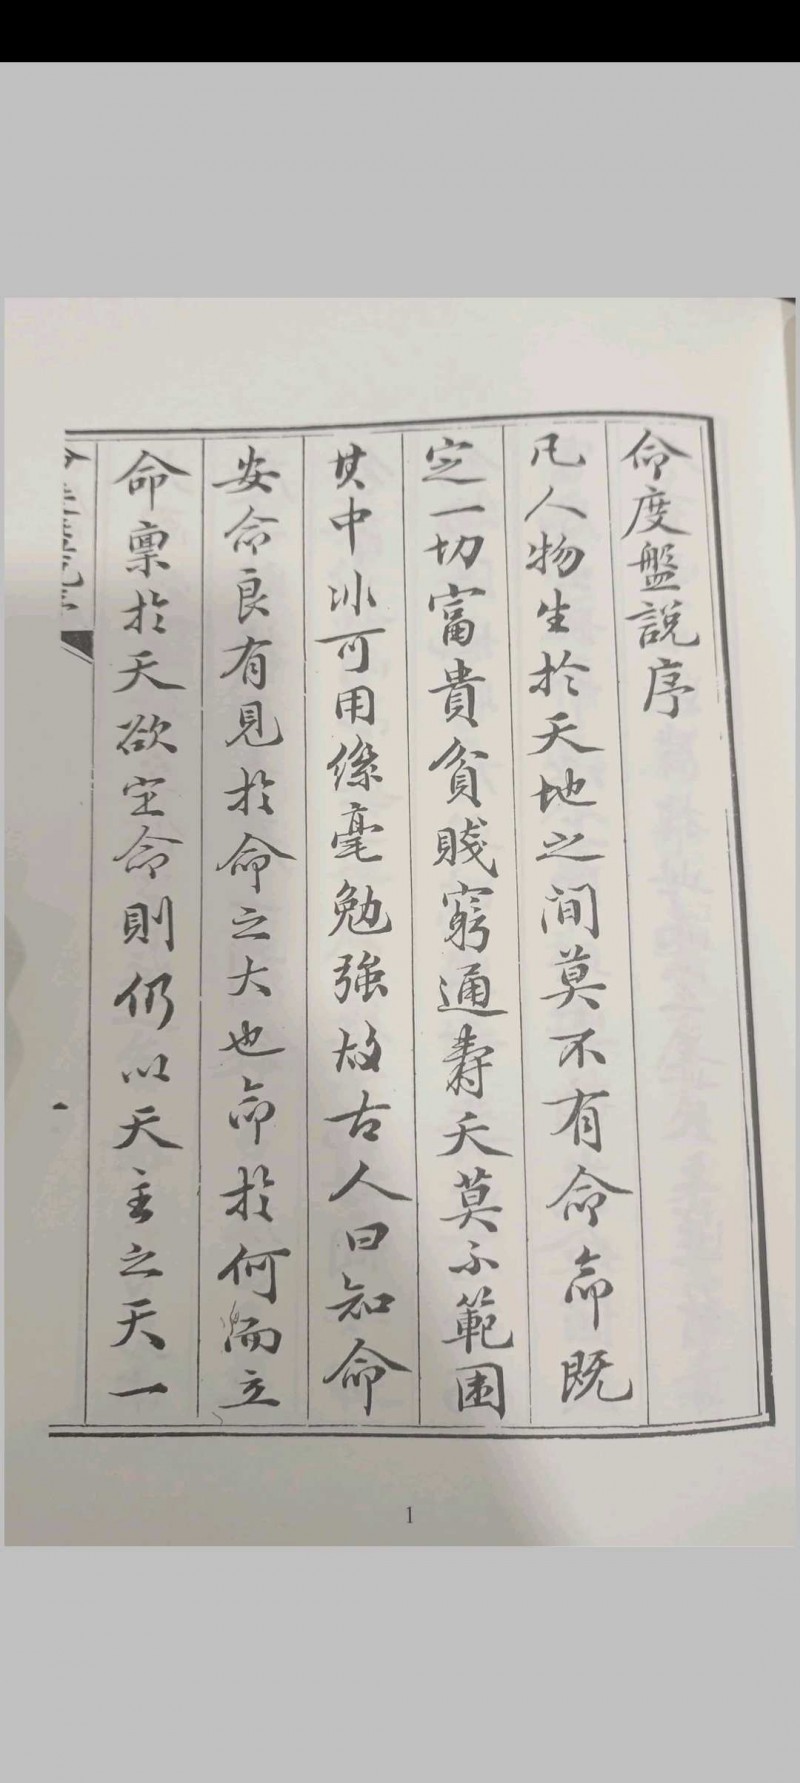 命度盤說序
凡人物生於天地之間莫不有命命既
定一切富貴貧賤窮通壽夭莫不範圍
其中非可用絲毫勉強故古人曰知命
安命良有見於命之大也命於何而立
命稟於天欲定命則仍以天主之天一
1